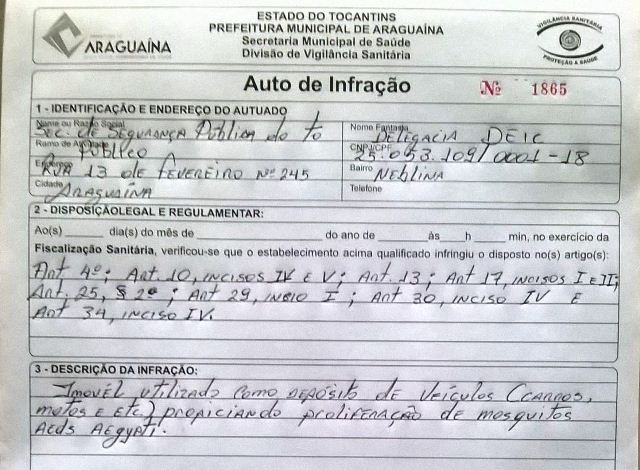 ARAGUAÍNA
ESTADO DO TOCANTINS
PREFEITURA MUNICIPAL DE ARAGUAÍNA
Secretaria Municipal de Saúde
Divisão de Vigilância Sanitária
VIGILÂNCIA SANITÁRIA
PROTEÇÃO À SAÚDE
Auto de Infração
Nº 1865
1 - IDENTIFICAÇÃO E ENDEREÇO DO AUTUADO
Nome ou Razão Social Sec. de Segurança Pública do To
Nome Fantasia Delegacia DEIC
Ramo de Atividade Público
CNPJ/CPF 25.053.109/0001-18
Endereço Rua 13 de Fevereiro Nº 245
Bairro Neblina
Cidade Araguaína
Telefone
2 - DISPOSIÇÃOLEGAL E REGULAMENTAR:
Ao(s) ______ dia(s) do mês de ______ do ano de ______ às ___ h ___ min, no exercício da
Fiscalização Sanitária, verificou-se que o estabelecimento acima qualificado infringiu o disposto no(s) artigo(s):
Art 4º; Art 10, incisos IV e V; Art. 13; Art 17, incisos I e II;
Art. 25, § 2º; Art 29, I; Art 30, inciso IV e
Art 34, inciso IV.
3 - DESCRIÇÃO DA INFRAÇÃO:
Imovél utilizado como depósito de veículos (carros,
motos e etc) propiciando proliferação de mosquitos
Aeds Aegypati.